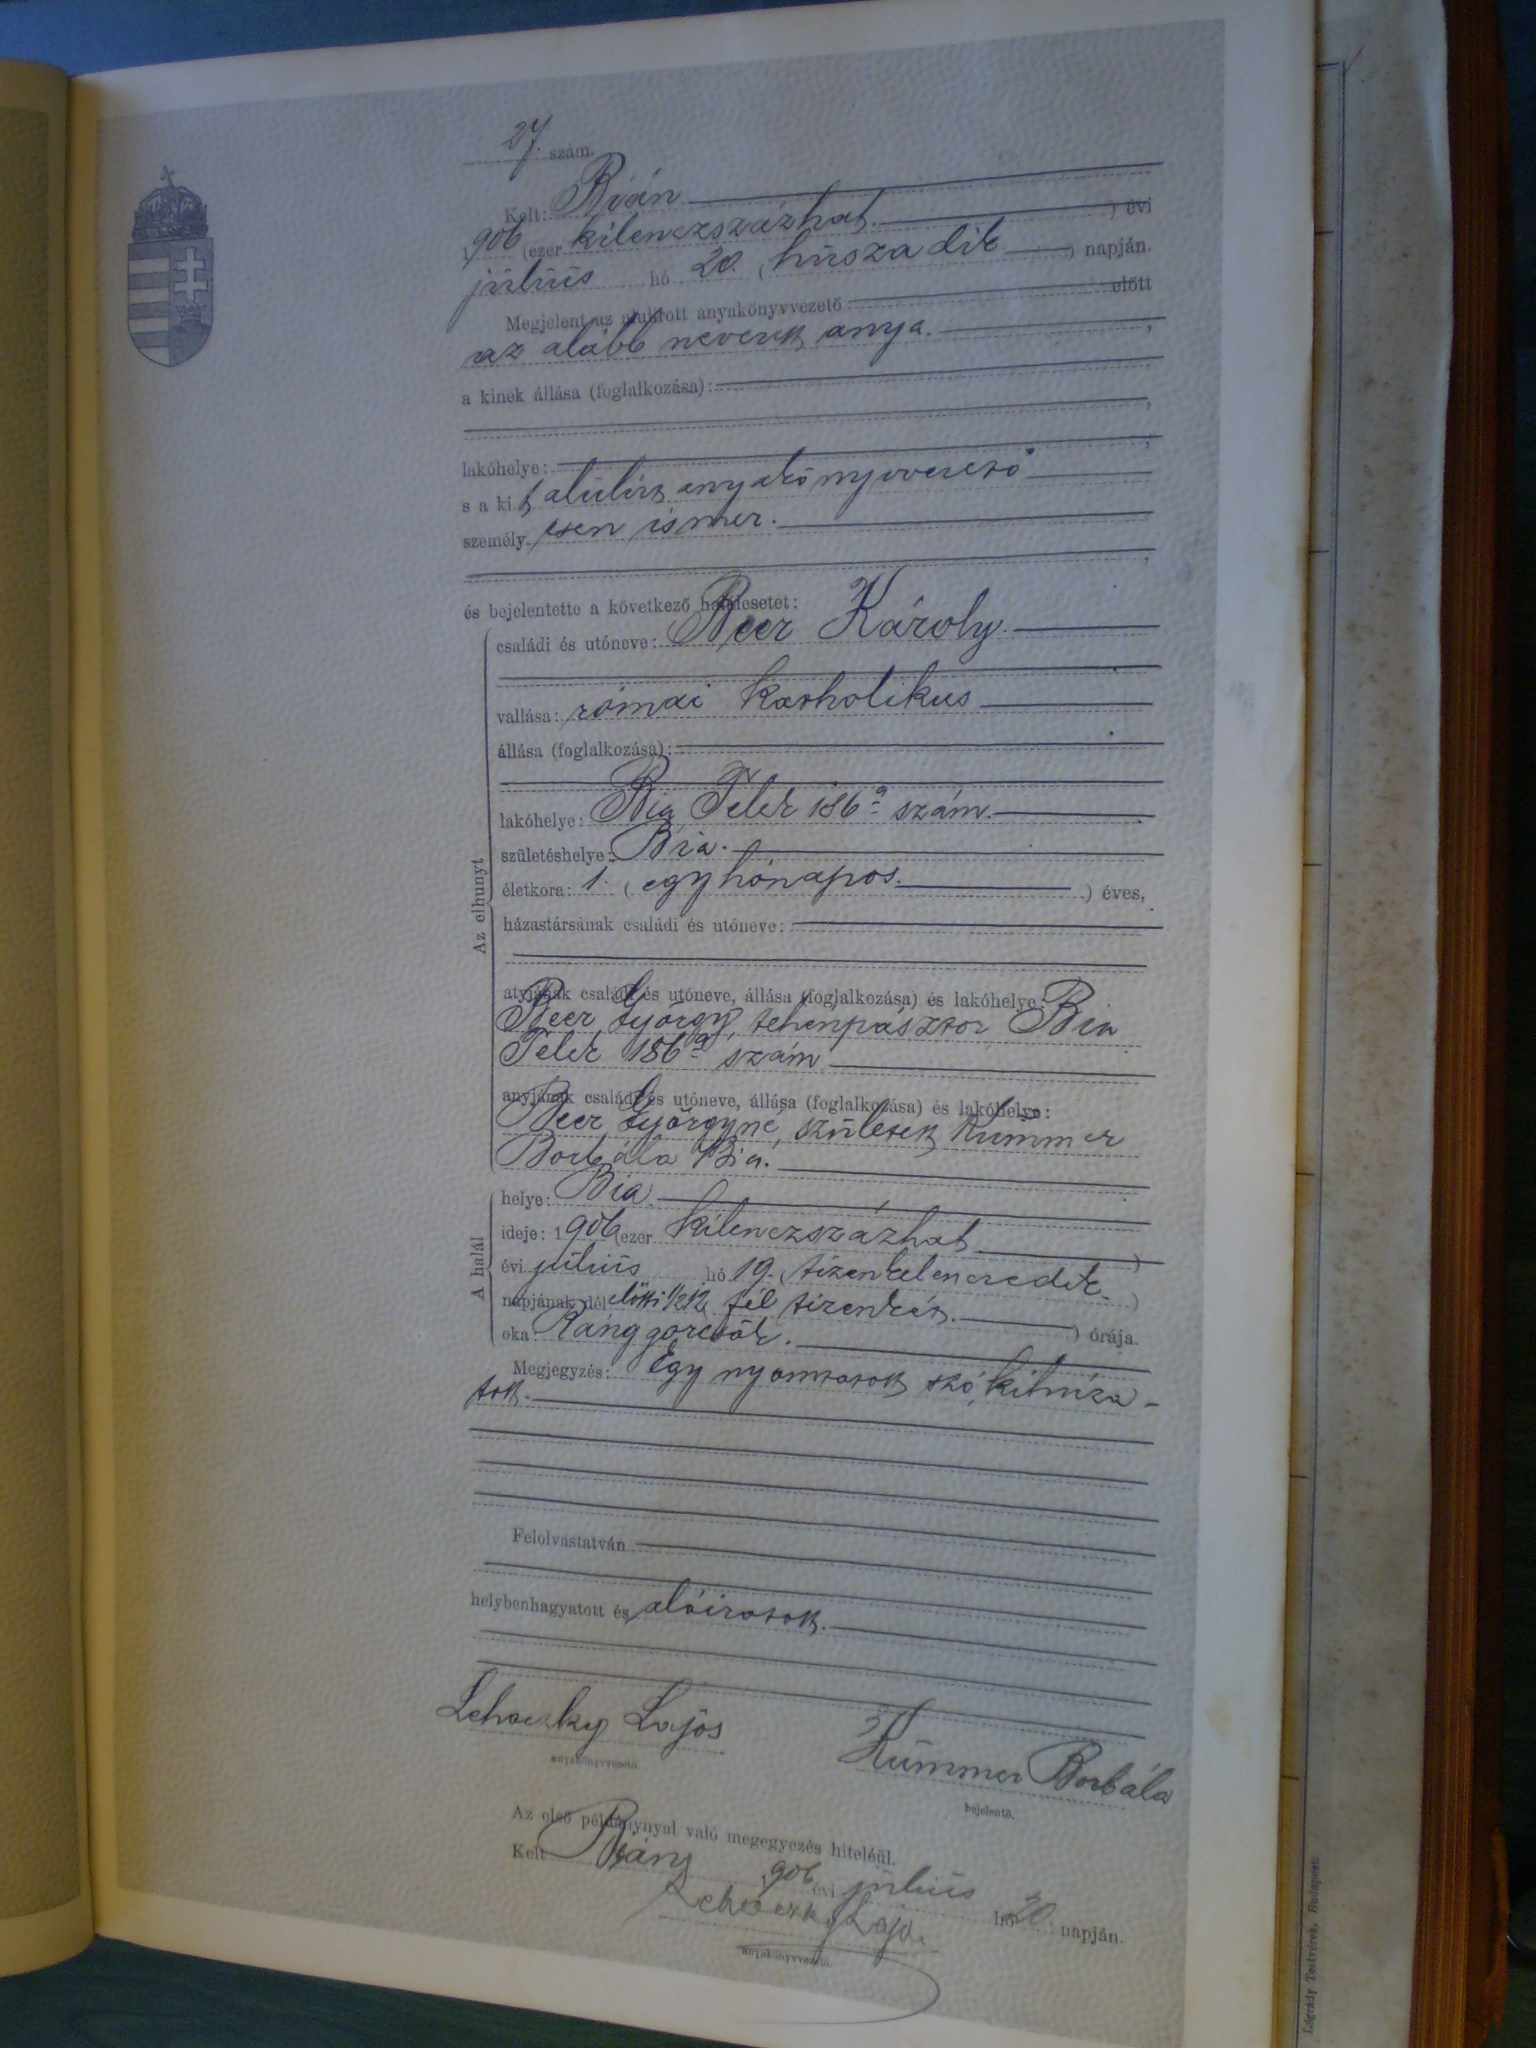 27. szám.
Kelt: Bián
1906 (ezer kilenczszázhat ) évi
július hó 20. (huszadik ) napján.
Megjelent az alulírott anyakönyvvezető előtt
az alább nevezett anya. ,
a kinek állása (foglalkozása):
,
lakóhelye: ,
s a kit alulírt anyakönyvvezető
személyesen ismer.
,
és bejelentette a következő halálesetet:
Az elhunyt
családi és utóneve: Beer Károly.
vallása: római katholikus
állása (foglalkozása):
lakóhelye: Bia Telek 186ª szám.
születéshelye: Bia.
életkora: 1. (egy hónapos. ) éves,
házastársának családi és utóneve:
atyjának családi és utóneve, állása (foglalkozása) és lakóhelye: Bia
Beer György, tehénpásztor
Telek 186ª szám
anyjának családi és utóneve, állása (foglalkozása) és lakóhelye:
Beer Györgyné, született Kummer
Borbála Bia.
A halál
helye: Bia
ideje: 1906 (ezer kilenczszázhat )
évi július hó 19. (tizenkilenczedik )
napjának dél előtti 1/2 12 (fél tizenkét. ) órája.
oka: Ránggörcsök.
Megjegyzés: Egy nyomtatott szó kihúza-
tott.
Felolvastatván
helybenhagyatott és aláiratott.
Lehoczky Lajos
anyakönyvvezető.
Kummer Borbála
bejelentő.
Az első példánynyal való megegyezés hiteléül.
Kelt Bián, 1906 évi július hó 20 napján.
Lehoczky Lajos
anyakönyvvezető.
Légrády Testvérek, Budapest.